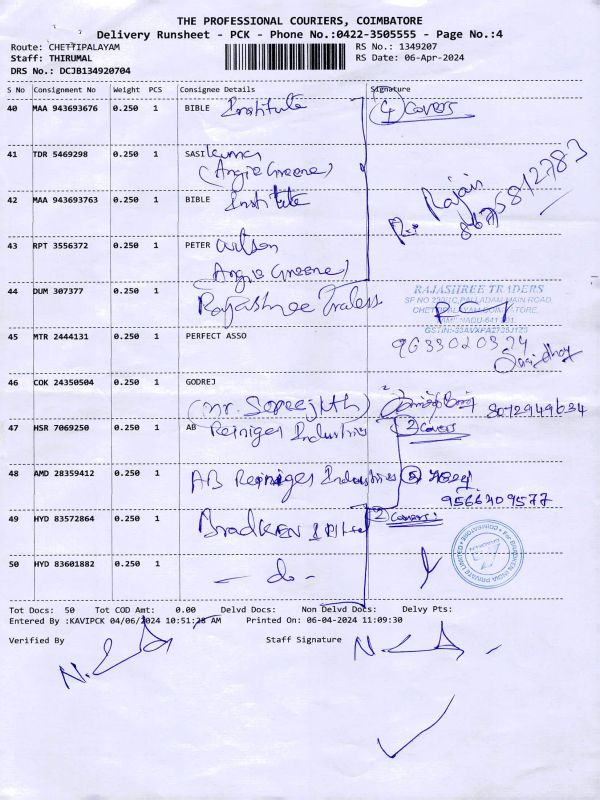 THE PROFESSIONAL COURIERS, COIMBATORE
Delivery Runsheet - PCK - Phone No.:0422-3505555 - Page No.:4
Route: CHETTIPALAYAM
RS No.: 1349207
Staff: THIRUMAL
RS Date: 06-Apr-2024
DRS No.: DCJB134920704
S No Consignment No Weight PCS Consignee Details Signature
40 MAA 943693676 0.250 1 BIBLE Institute (4) Covers
41 TDR 5469298 0.250 1 SASI kumar
(Angie Greene)
42 MAA 943693763 0.250 1 BIBLE Institute
Rajan
8675812783
43 RPT 3556372 0.250 1 PETER wilson
(Angie Greene)
44 DUM 307377 0.250 1 Rajashree Traders
RAJASHREE TRADERS
SF NO PALLADAM MAIN ROAD,
45 MTR 2444131 0.250 1 PERFECT ASSO
9633020374
46 COK 24350504 0.250 1 GODREJ
(Mr. Sreejith) 8072949634
47 HSR 7069250 0.250 1 AB Reiniger Industries (2) Covers
48 AMD 28359412 0.250 1 AB Reiniger Industries
9566209577
49 HYD 83572864 0.250 1 BradKEN (2) Covers
50 HYD 83601882 0.250 1 - do -
Tot Docs: 50 Tot COD Amt: 0.00 Delvd Docs: Non Delvd Docs: Delvy Pts:
Entered By :KAVIPCK 04/06/2024 10:51:28 AM Printed On: 06-04-2024 11:09:30
Verified By Staff Signature